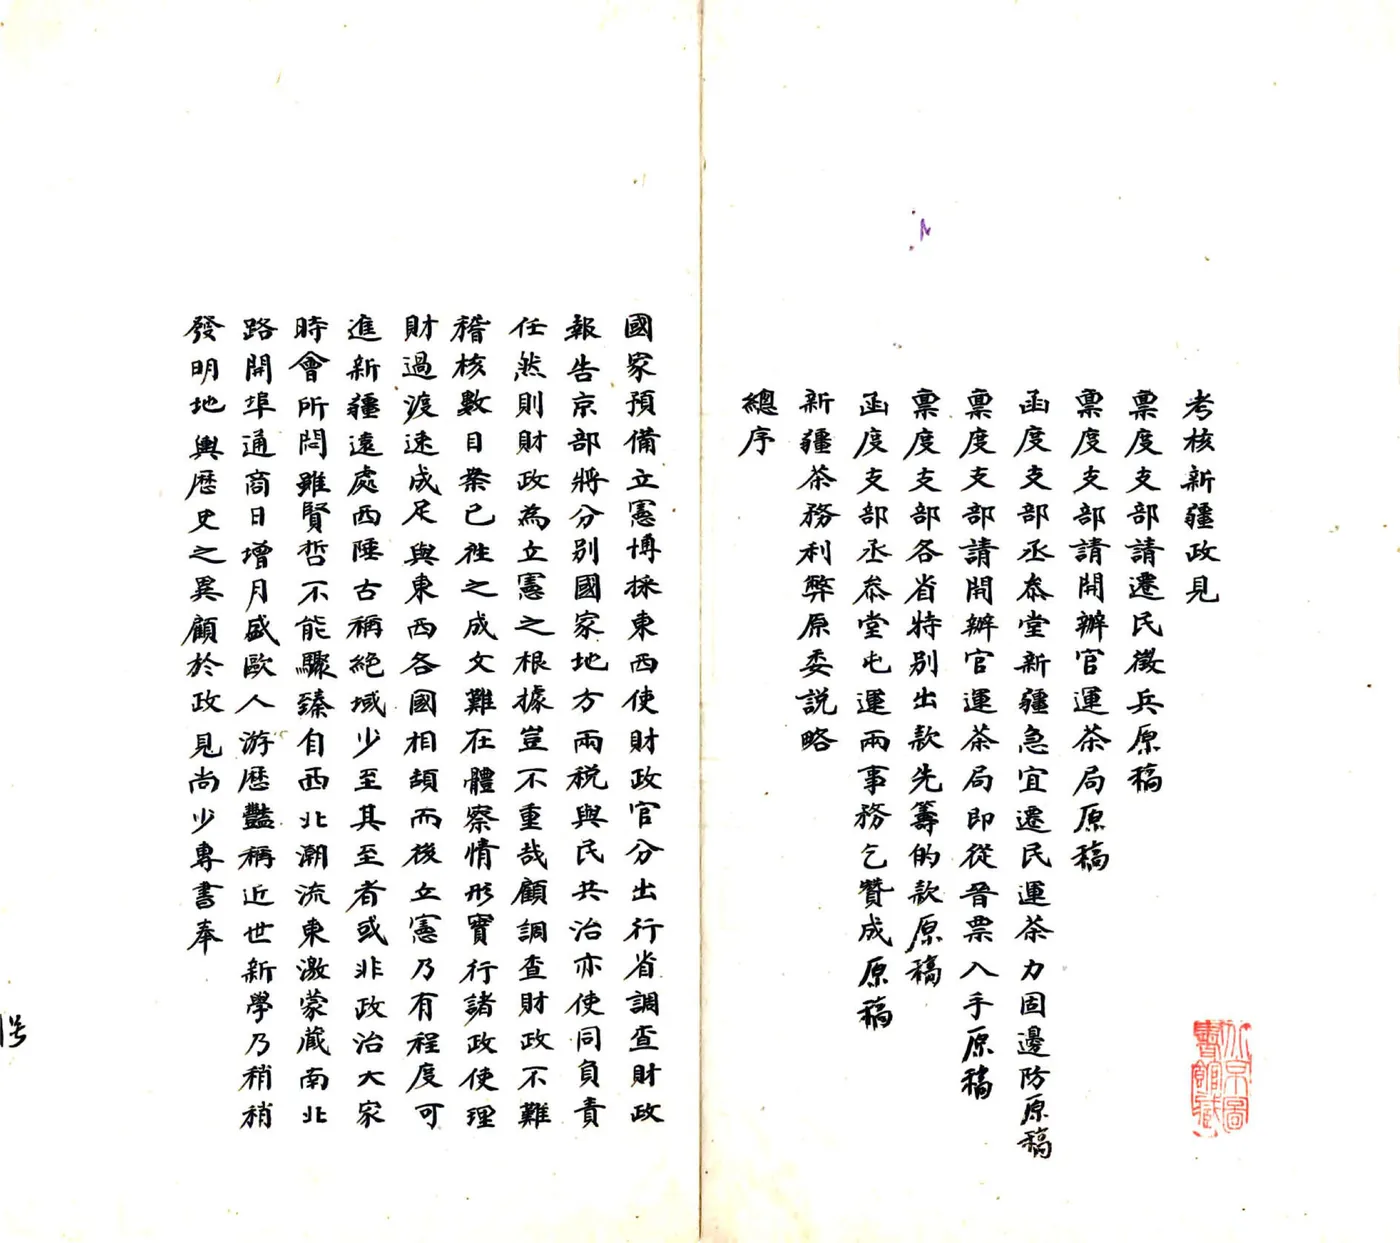 考核新疆政見
稟度支部請遷民徵兵原稿
稟度支部請開辦官運茶局原稿
函度支部丞叅堂新疆急宜遷民運茶力固邊防原稿
稟度支部請開辦官運茶局即從晉票入手原稿
稟度支部各省特別出款先籌的款原稿
函度支部丞叅堂屯運兩事務乞贊成原稿
新疆茶務利弊原委説略
總序
北京圖
書館藏
國家預備立憲博採東西使財政官分出行省調查財政
報告京部將分別國家地方兩税與民共治亦使同負責
任然則財政為立憲之根據豈不重哉顧調查財政不難
稽核數目案已往之成文難在體察情形實行諸政使理
財過渡速成足與東西各國相頡而後立憲乃有程度可
進新疆遠處西陲古稱絕域少至其至者或非政治大家
時會所問雖賢哲不能驟臻自西北潮流東激蒙藏南北
路開埠通商日增月盛歐人游歷豔稱近世新學乃稍稍
發明地輿歷史之異顧於政見尚少專書奉